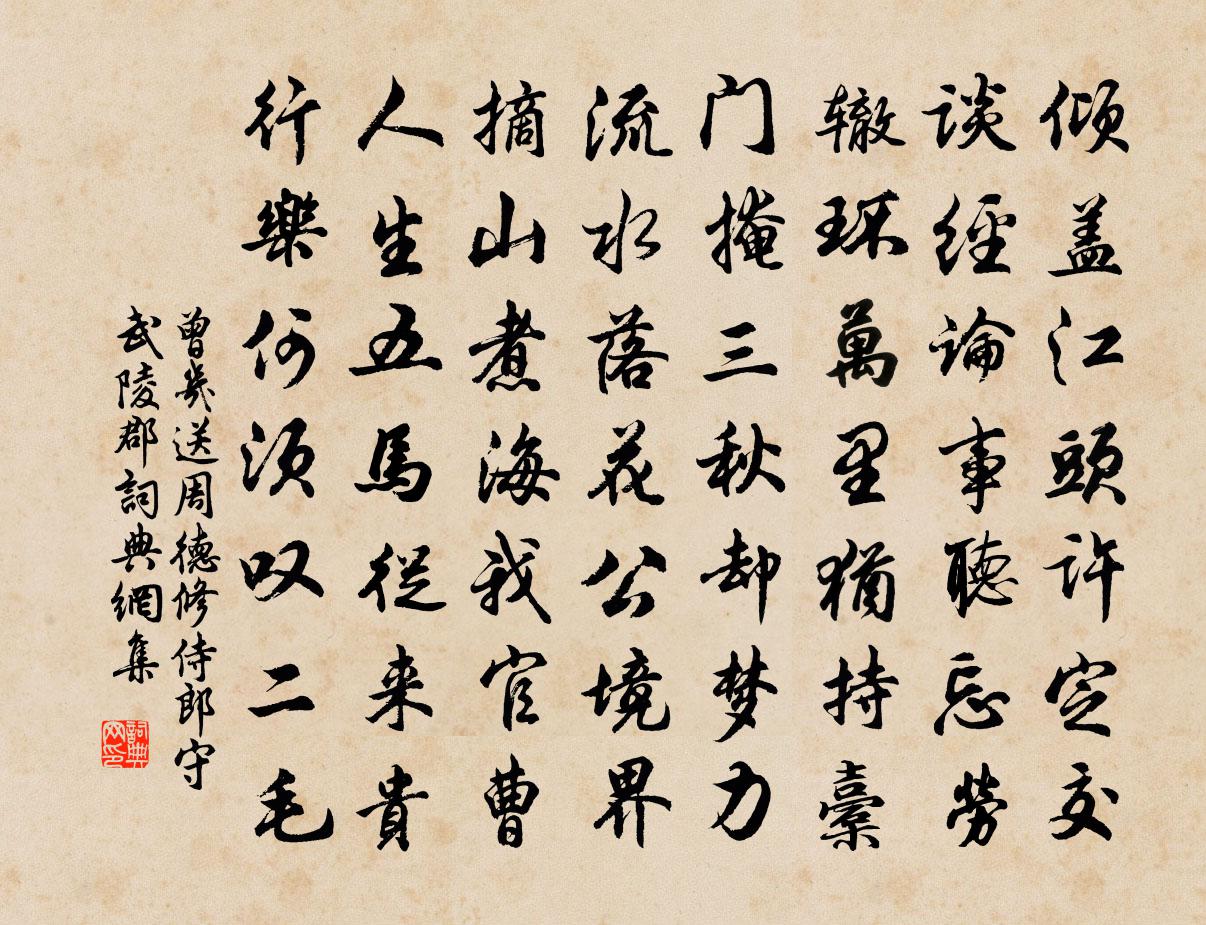 倾盖江頭许定交
谈經論事聽忘勞
辙环萬里猶持橐
门掩三秋却梦刀
流水落花公境界
摘山煮海我官曹
人生五馬從来貴
行樂何须叹二毛
曾幾送周德修侍郎守
武陵郡詞典網集
詞典
网印